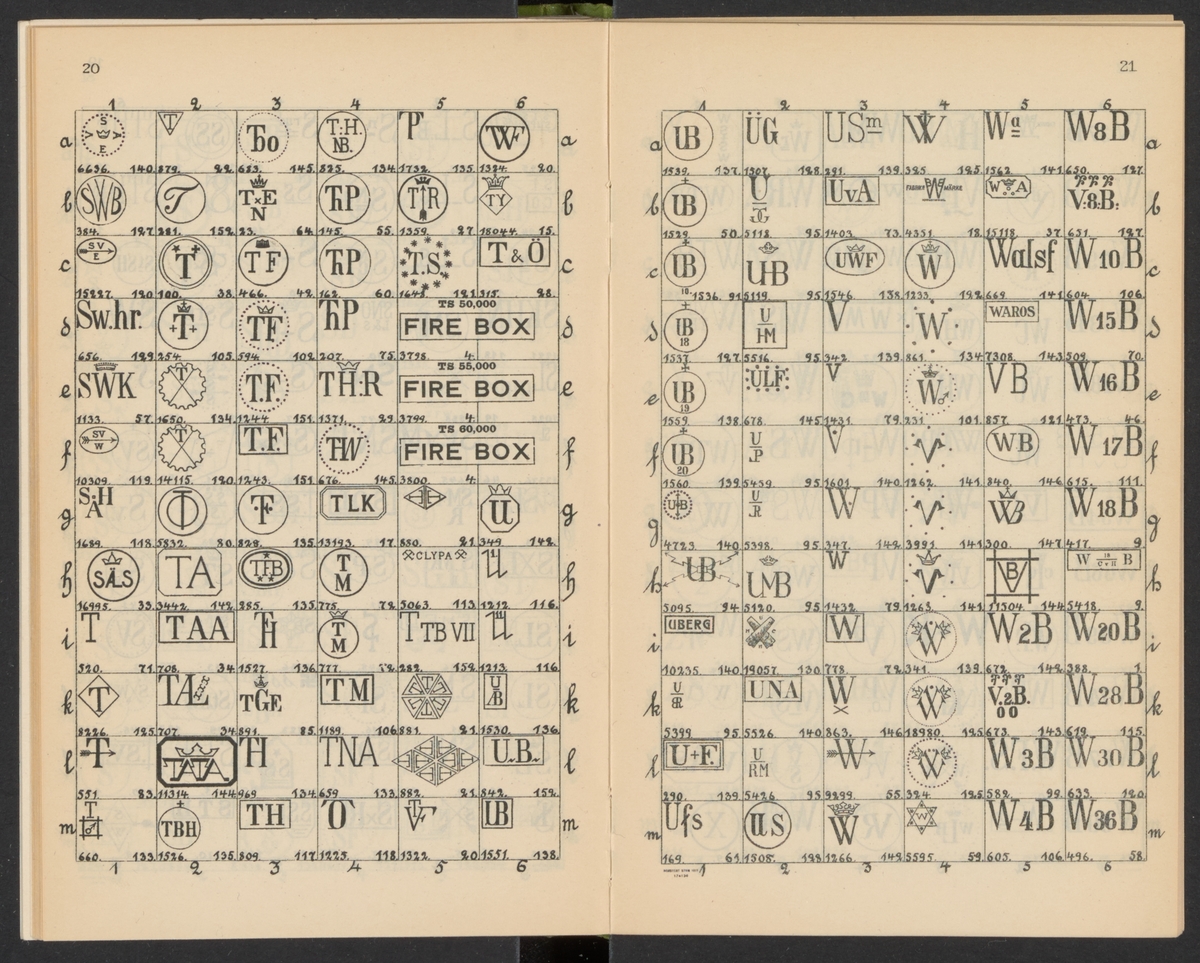 20
1 2 3 4 5 6
a
S V E
T
Ъo
T:H. NB.
P
WF
a
6636. 140. 879. 22. 683. 145. 525. 134. 1732. 135. 1324. 20.
b
SWB
T
T×E N
ħP
T R
TY
b
384. 127. 281. 152. 23. 64. 145. 55. 1359. 27. 18044. 15.
c
SV E
T
T F
ħP
T.S
T & Ö
c
15227. 120. 100. 38. 466. 42. 162. 60. 1641. 121. 315. 28.
d
Sw.hr.
T
TF
ħP
TS 50,000
FIRE BOX
d
656. 129. 254. 105. 594. 102. 207. 75. 3798. 4.
e
SWK
T.F.
TH:R
TS 55,000
FIRE BOX
e
1133. 57. 1650. 134. 1244. 151. 1371. 29. 3799. 4.
f
SV W
T
T.F.
HW
TS 60,000
FIRE BOX
f
10309. 119. 14115. 120. 1243. 151. 676. 145. 3800. 4.
g
S:H A
F
TLK
U
g
1689. 118. 5832. 80. 829. 135. 13193. 17. 880. 21. 349. 142.
h
SÅLS
TA
TFB
T M
CLYPA
h
16995. 33. 3442. 142. 285. 135. 775. 72. 5063. 113. 1212. 116.
i
T
TAA
TH
T M
T TB VII
i
520. 71. 708. 34. 1527. 136. 777. 72. 282. 152. 1213. 116.
k
T
TAL
TGE
TM
U B
k
8226. 125. 707. 34. 891. 85. 1189. 106. 881. 21. 1530. 136.
l
T
TATA
TH
TNA
U.B.
l
551. 83. 11314. 144. 969. 134. 659. 133. 882. 21. 842. 152.
m
T
TBH
TH
O
UB
m
660. 133. 1526. 135. 809. 117. 1225. 118. 1322. 20. 1551. 138.
1 2 3 4 5 6
21
1 2 3 4 5 6
a
UB
ÜG
USm
W
Wa
W8B
a
1539. 137. 1307. 128. 291. 139. 325. 125. 1562. 141. 650. 127.
b
UB
U G
UvA
FABRIKS W MÄRKE
W A
V:8:B:
b
1529. 50. 5118. 95. 1403. 73. 4351. 18. 15118. 37. 651. 127.
c
UB
10.
UB
UWF
W
Walsf
W10B
c
1536. 91. 5119. 95. 1546. 138. 1233. 122. 669. 141. 604. 106.
d
UB 18
U HM
V
W
WAROS
W15B
d
1537. 127. 5516. 95. 342. 139. 861. 134. 7308. 143. 509. 70.
e
UB 19
ULF
V
W
VB
W16B
e
1559. 138. 678. 145. 1431. 79. 231. 101. 857. 121. 473. 46.
f
UB 20
U P
V
V
WB
W17B
f
1560. 139. 5459. 95. 1601. 140. 1262. 141. 840. 146. 615. 111.
g
U B
U R
W
V
WB
W18B
g
4723. 140. 5398. 95. 347. 142. 3991. 141. 300. 147. 417. 9.
h
UB
UMB
W
V
B
W B
h
5095. 94. 5120. 95. 1432. 79. 1263. 141. 11504. 144. 5418. 9.
i
UBERG
W
W
W2B
W20B
i
10235. 140. 19057. 130. 778. 72. 341. 139. 672. 142. 388. 1
k
U
UNA
W
W
V.2B. 00
W28B
k
5399. 95. 5526. 140. 863. 146. 18980. 125. 673. 143. 619. 115.
l
U+F.
U RM
W
W
W3B
W30B
l
290. 139. 5426. 95. 9299. 55. 324. 125. 582. 99. 633. 120.
m
Ufs
US
W
W
W4B
W36B
m
169. 61. 1508. 128. 1266. 142. 5595. 59. 605. 106. 496. 58.
1 2 3 4 5 6